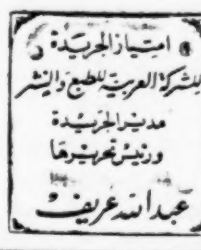 امتياز الجريدة
للشركة العربية للطبع والنشر
مدير الجريدة
ورئيس تحريرها
عبد الله عريف